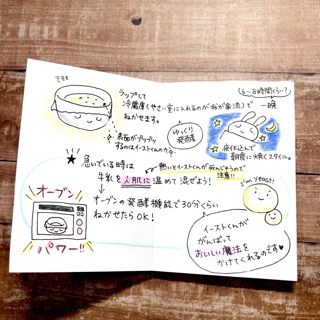 zzz
ラップして
冷蔵庫(やさい室に入れるのが我が家流)で 一晩
ねかせます。
(6~8時間くらい?)
ゆっくり
発酵
表面がプップッ
するのはイーストくんの力
夜仕込んで
朝焼に焼くスタイル
★急いでいる時は
熱いとイーストくんが死んじゃうので
注意!!
牛乳を人肌に温めて混ぜよう!
オーブンの発酵機能で30分くらい
ねかせたらOK!
オーブン
パワー!!
I'm yeast!
イーストくんが
がんばって
おいしい魔法を
かけてくれるのです♥